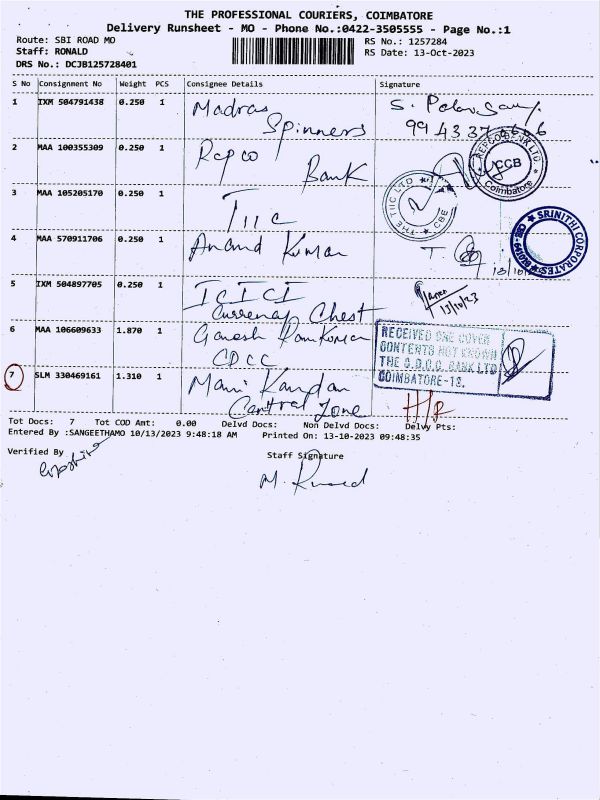 THE PROFESSIONAL COURIERS, COIMBATORE
Delivery Runsheet - MO - Phone No.:0422-3505555 - Page No.:1
Route: SBI ROAD MO
RS No.: 1257284
Staff: RONALD
RS Date: 13-Oct-2023
DRS No.: DCJB125728401
S No Consignment No Weight PCS Consignee Details Signature
1 IXM 504791438 0.250 1 Madras Spinners
2 MAA 100355309 0.250 1 Repco Bank
REPCO BANK LTD. CGB Coimbatore
3 MAA 105205170 0.250 1 TIIC
THE TIIC LTD CBE
4 MAA 570911706 0.250 1 Anand Kumar T.
SRINITHI CORPORATES
5 IXM 504897705 0.250 1 ICICI Currenay Chest 13/10/23
6 MAA 106609633 1.870 1 Ganesh Ramkumar CDCC
RECEIVED ONE COVER
CONTENTS NOT KNOWN
THE C.D.C.C. BANK LTD
COIMBATORE-18.
7 SLM 330469161 1.310 1 Mani Kandan Central Zone
Tot Docs: 7 Tot COD Amt: 0.00 Delvd Docs: Non Delvd Docs: Delvy Pts:
Entered By :SANGEETHAMO 10/13/2023 9:48:18 AM Printed On: 13-10-2023 09:48:35
Verified By
Staff Signature